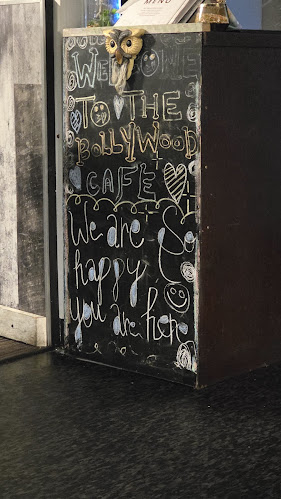 MENU
WELCOME
TO THE
BOLLYWOOD
CAFE
We are So
happy
you are here